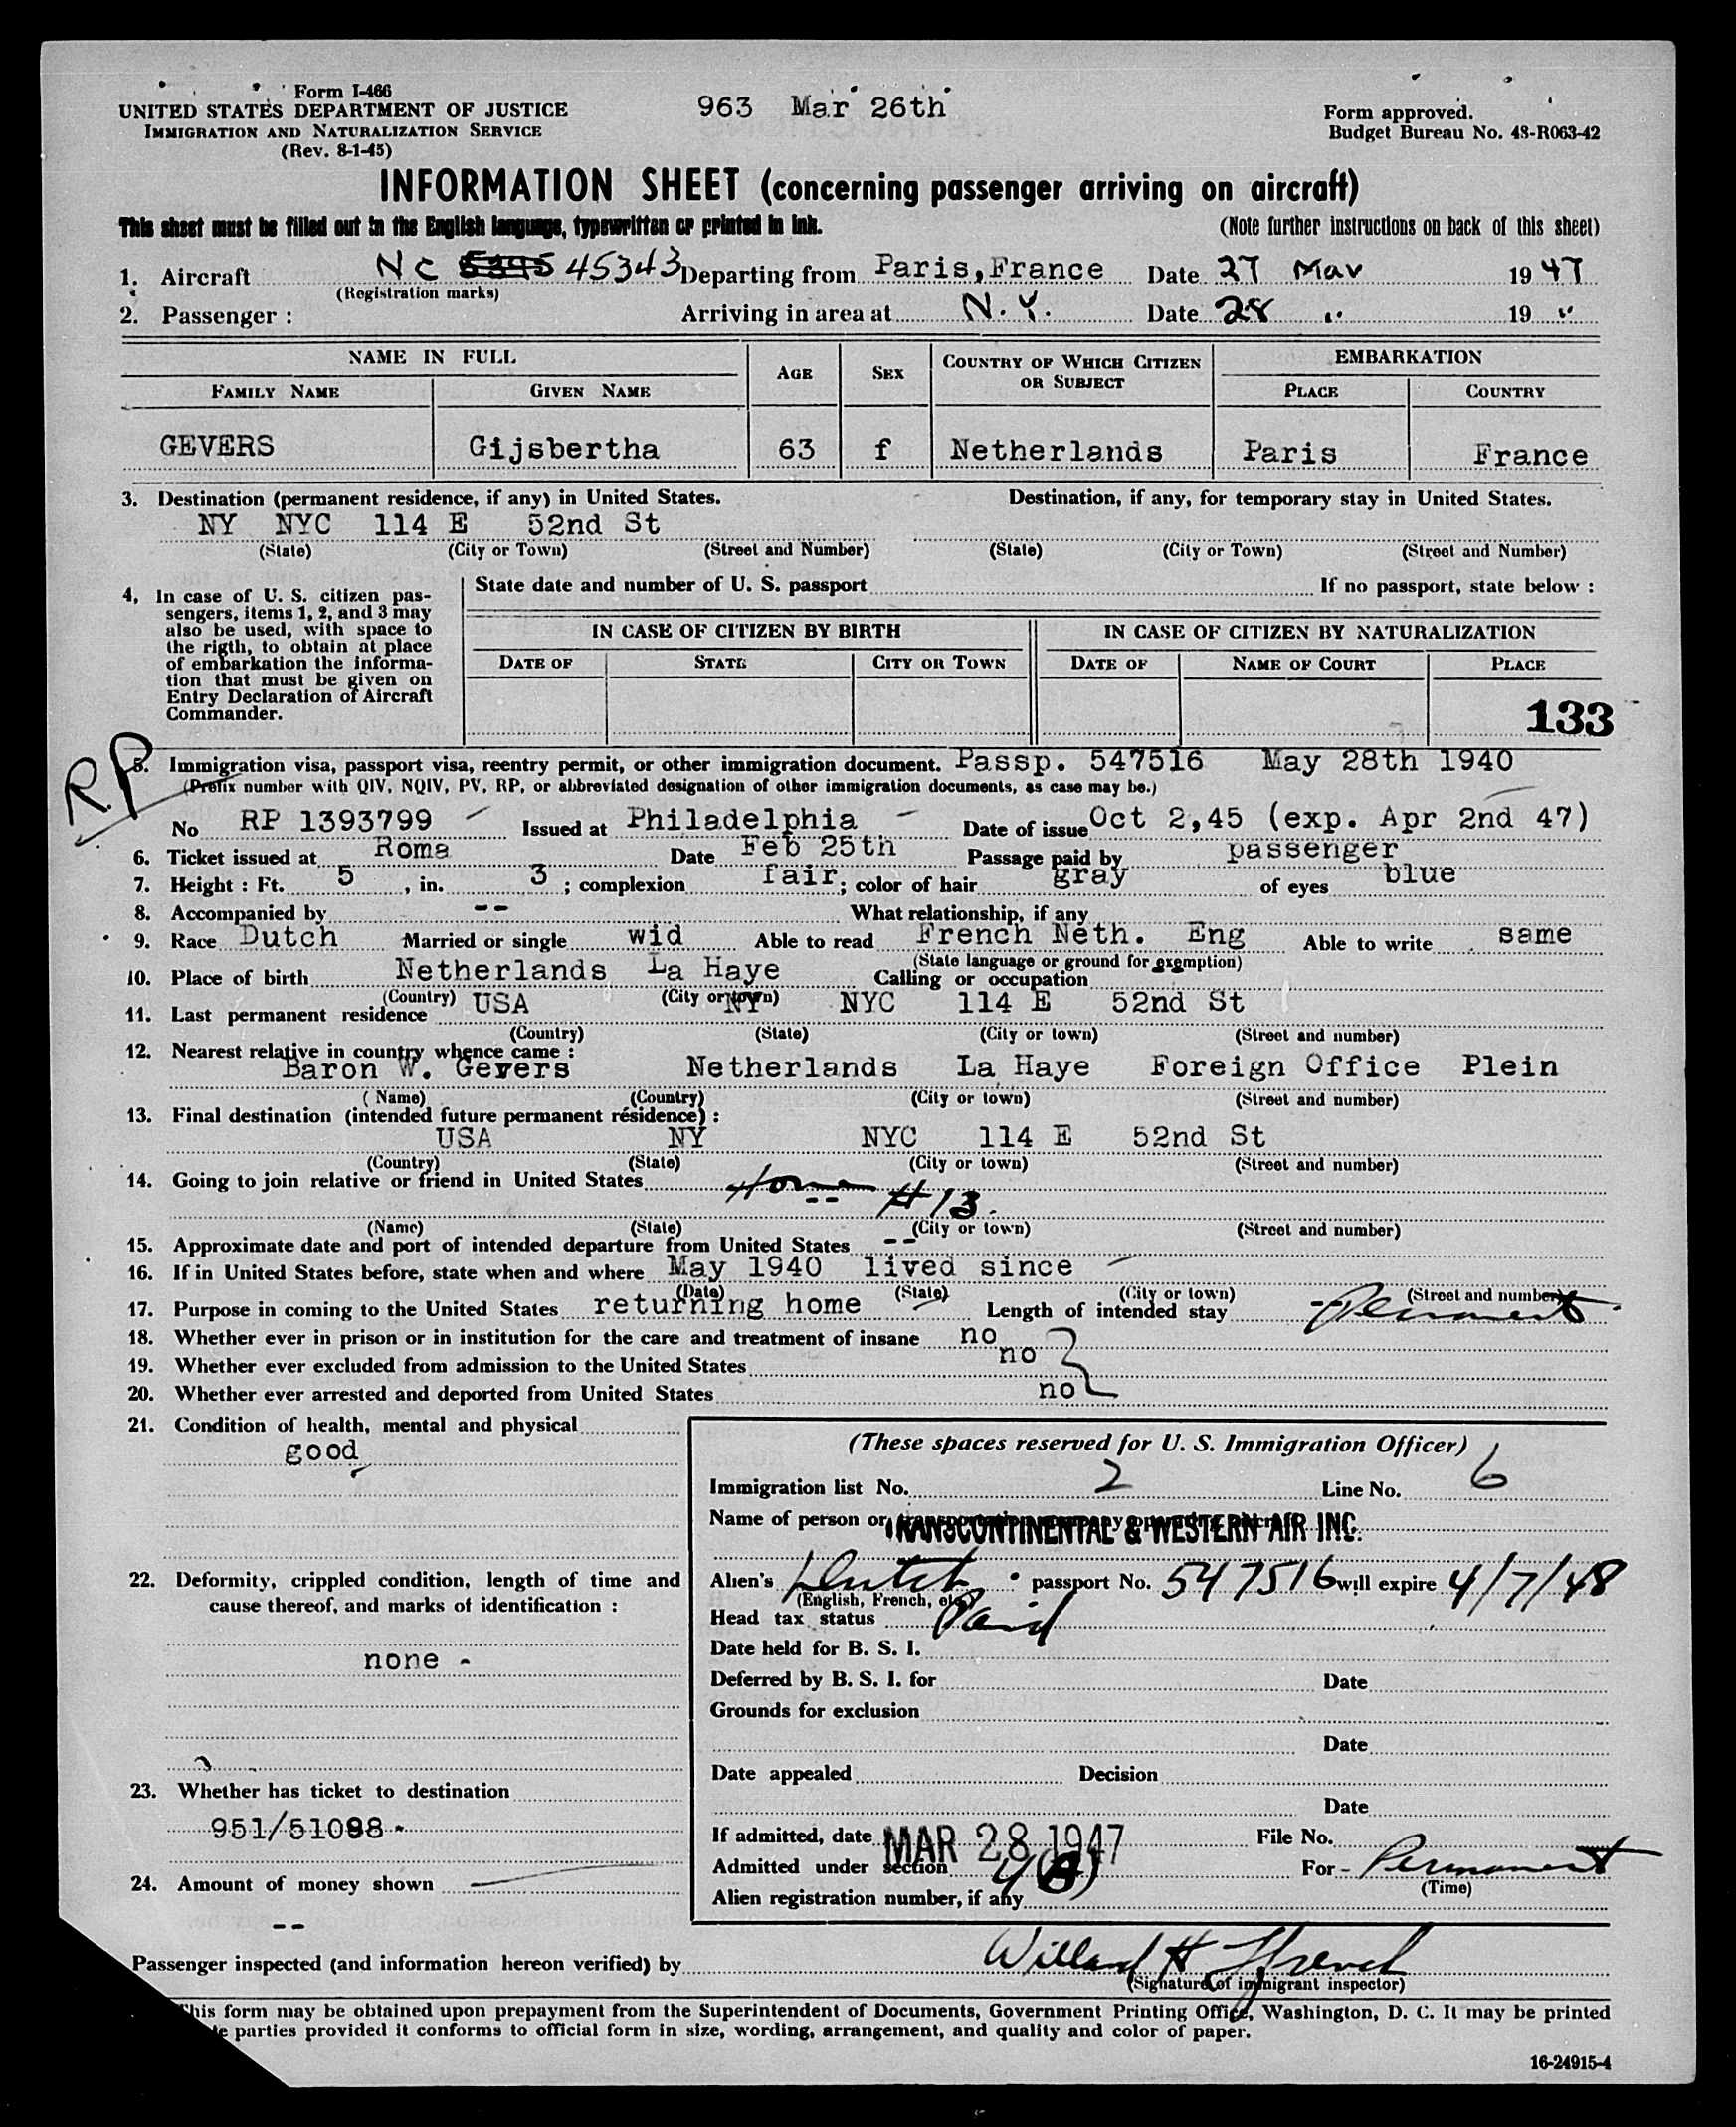 Form I-466
UNITED STATES DEPARTMENT OF JUSTICE
IMMIGRATION AND NATURALIZATION SERVICE
(Rev. 8-1-45)
963 Mar 26th
Form approved.
Budget Bureau No. 43-R063-42
INFORMATION SHEET (concerning passenger arriving on aircraft)
This sheet must be filled out in the English language, typewritten or printed in ink. (Note further instructions on back of this sheet)
1. Aircraft NC 45343 Departing from Paris,France Date 27 Mar 1947
(Registration marks)
2. Passenger : Arriving in area at N.Y. Date 28 " 19 "
NAME IN FULL AGE SEX COUNTRY OF WHICH CITIZEN OR SUBJECT EMBARKATION
FAMILY NAME GIVEN NAME PLACE COUNTRY
GEVERS Gijsbertha 63 f Netherlands Paris France
3. Destination (permanent residence, if any) in United States. Destination, if any, for temporary stay in United States.
NY NYC 114 E 52nd St
(State) (City or Town) (Street and Number) (State) (City or Town) (Street and Number)
4, In case of U. S. citizen pas-
sengers, items 1, 2, and 3 may
also be used, with space to
the rigth, to obtain at place
of embarkation the informa-
tion that must be given on
Entry Declaration of Aircraft
Commander.
State date and number of U. S. passport If no passport, state below :
IN CASE OF CITIZEN BY BIRTH IN CASE OF CITIZEN BY NATURALIZATION
DATE OF STATE CITY OR TOWN DATE OF NAME OF COURT PLACE
133
RP
5. Immigration visa, passport visa, reentry permit, or other immigration document. Passp. 547516 May 28th 1940
(Prefix number with QIV, NQIV, PV, RP, or abbreviated designation of other immigration documents, as case may be.)
No RP 1393799 Issued at Philadelphia Date of issue Oct 2,45 (exp. Apr 2nd 47)
6. Ticket issued at Roma Date Feb 25th Passage paid by passenger
7. Height : Ft. 5 , in. 3 ; complexion fair ; color of hair gray of eyes blue
8. Accompanied by -- What relationship, if any
9. Race Dutch Married or single wid Able to read French Neth. Eng Able to write same
(State language or ground for exemption)
10. Place of birth Netherlands La Haye Calling or occupation
(Country) (City or town)
11. Last permanent residence USA NY NYC 114 E 52nd St
(Country) (State) (City or town) (Street and number)
12. Nearest relative in country whence came :
Baron W. Gevers Netherlands La Haye Foreign Office Plein
( Name) (Country) (City or town) (Street and number)
13. Final destination (intended future permanent résidence) :
USA NY NYC 114 E 52nd St
(Country) (State) (City or town) (Street and number)
14. Going to join relative or friend in United States Home
-- #13.
(Name) (State) (City or town) (Street and number)
15. Approximate date and port of intended departure from United States --
16. If in United States before, state when and where May 1940 lived since
(Date) (State) (City or town) (Street and number)
17. Purpose in coming to the United States returning home Length of intended stay -- Permanent
18. Whether ever in prison or in institution for the care and treatment of insane no
19. Whether ever excluded from admission to the United States no
20. Whether ever arrested and deported from United States no
21. Condition of health, mental and physical
good
22. Deformity, crippled condition, length of time and
cause thereof, and marks of identification :
none -
23. Whether has ticket to destination
951/51098 -
24. Amount of money shown
--
(These spaces reserved for U. S. Immigration Officer)
Immigration list No. 2 Line No. 6
Name of person or transportation company
TRANSCONTINENTAL & WESTERN AIR INC.
Alien's Dutch passport No. 547516 will expire 4/7/48
(English, French, etc.)
Head tax status Paid
Date held for B. S. I.
Deferred by B. S. I. for Date
Grounds for exclusion
Date
Date appealed Decision
Date
If admitted, date MAR 28 1947 File No.
Admitted under section 4(B) For - Permanent
(Time)
Alien registration number, if any
Passenger inspected (and information hereon verified) by Willard H
(Signature of immigrant inspector)
This form may be obtained upon prepayment from the Superintendent of Documents, Government Printing Office, Washington, D. C. It may be printed
parties provided it conforms to official form in size, wording, arrangement, and quality and color of paper.
16-24915-4